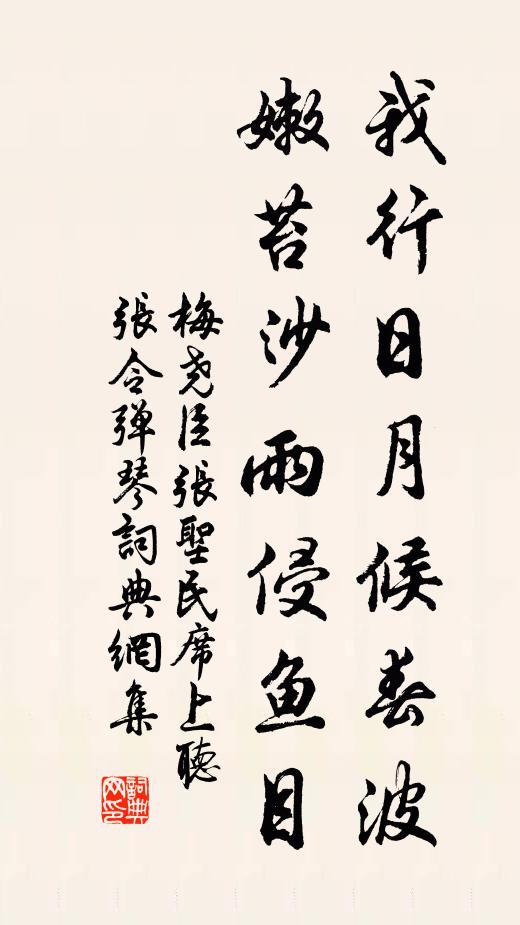 我行日月候春波
嫩苔沙雨侵鱼目
梅尧臣張聖民席上聽
張令弹琴詞典網集
詞典
网印